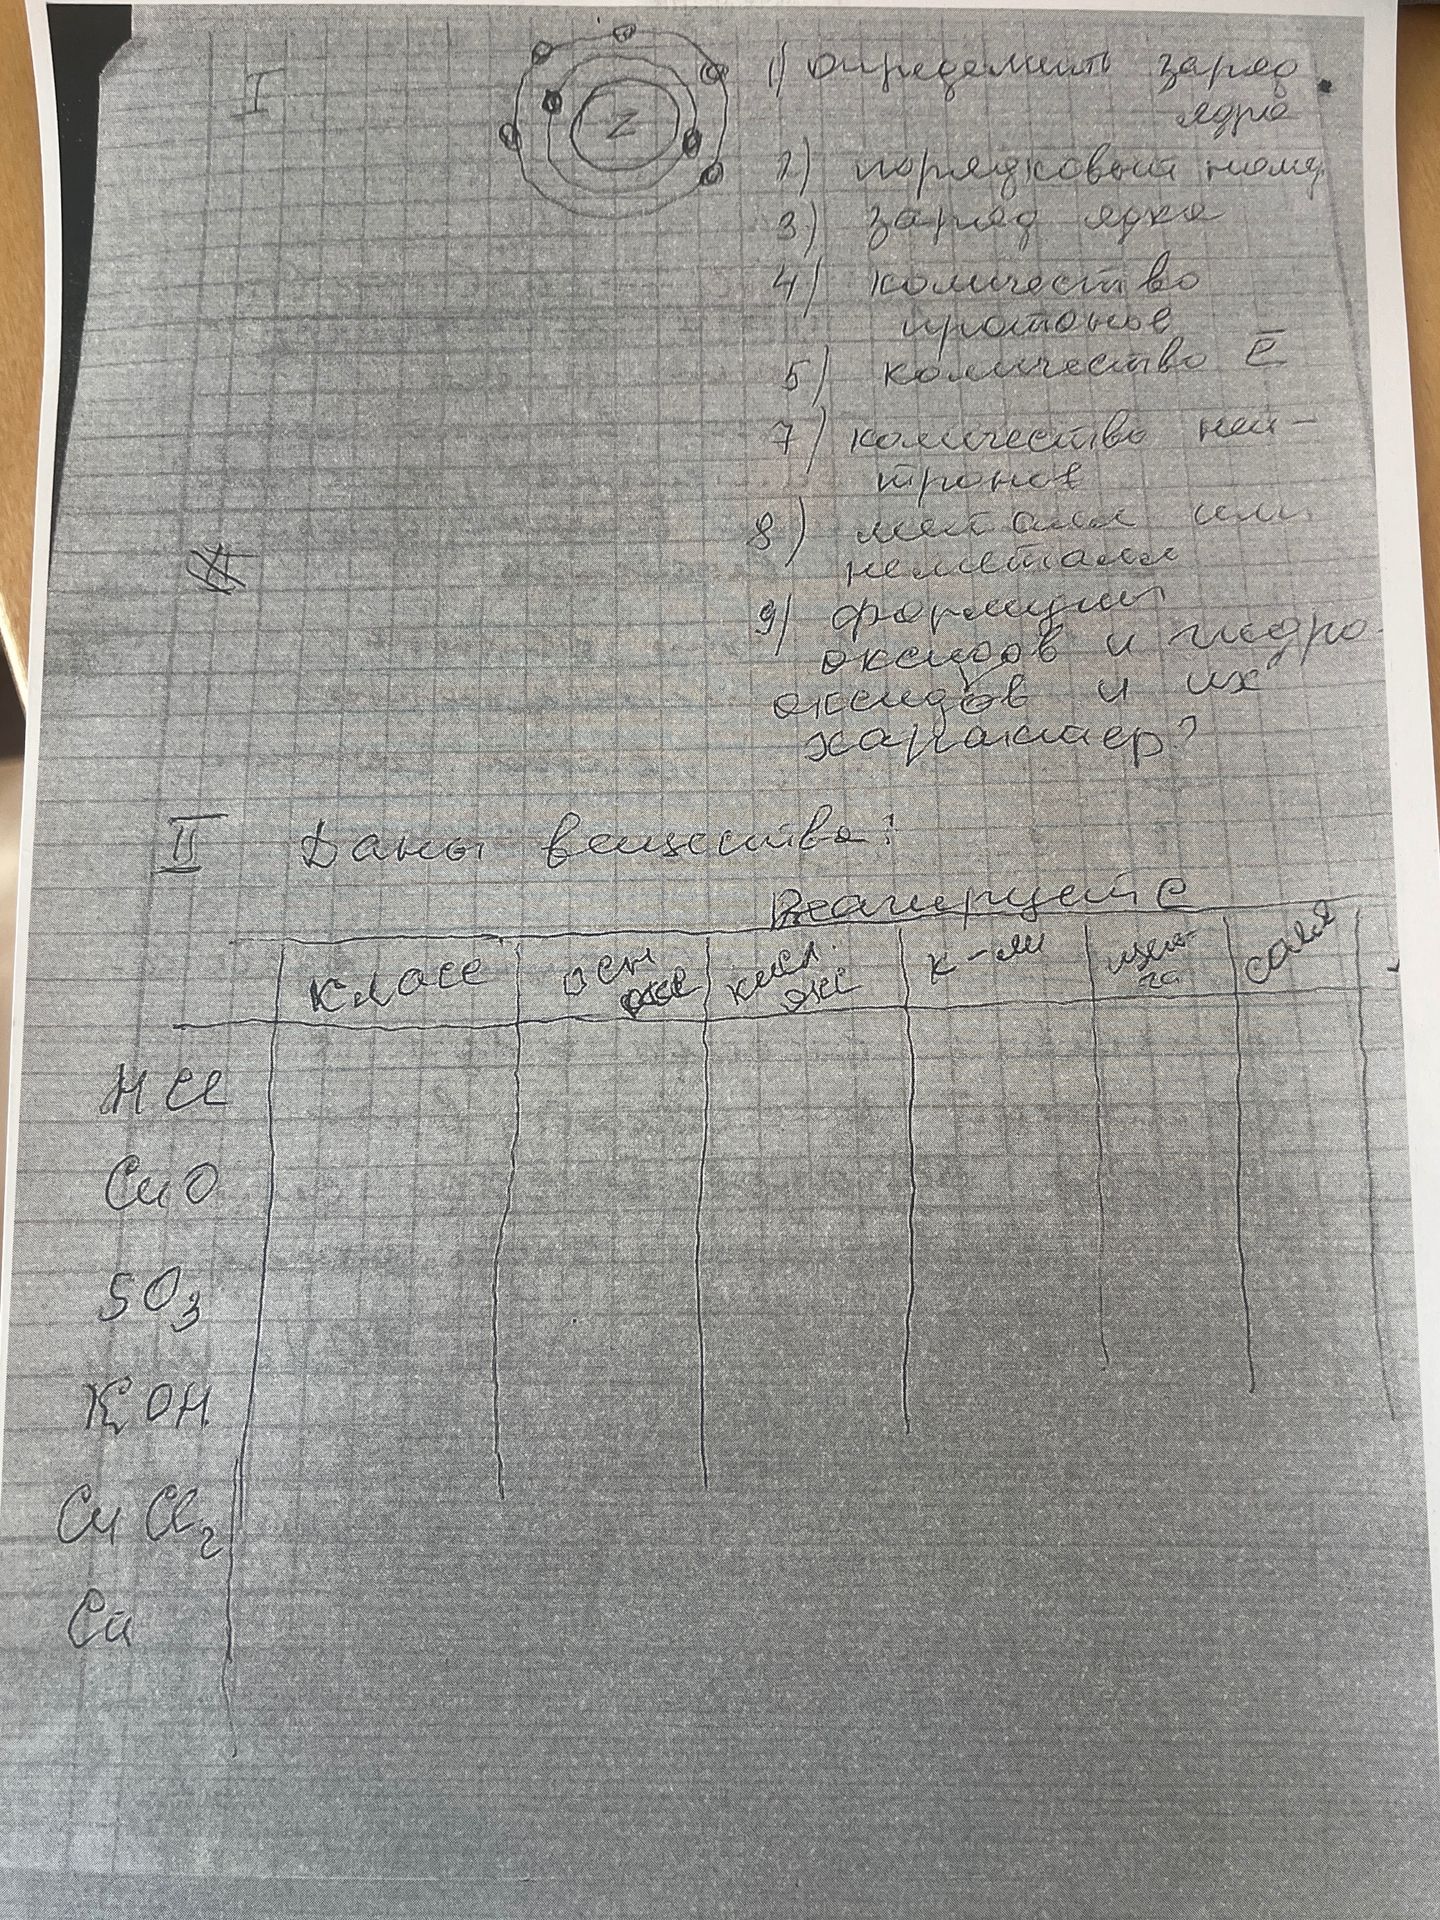 I
Z
1) Определить заряд
ядра
2) порядковый номер
3) заряд ядра
4) количество
протонов
5) количество ē
7) количество ней-
тронов
8) металл или
неметалл
9) формулы
оксидов и гидро-
оксидов и их
характер?
II Даны вещества:
Реагирует с
класс осн окс кисл. окс к-ми щел- соля
HCl
CuO
SO3
KOH
CuCl2
Ca